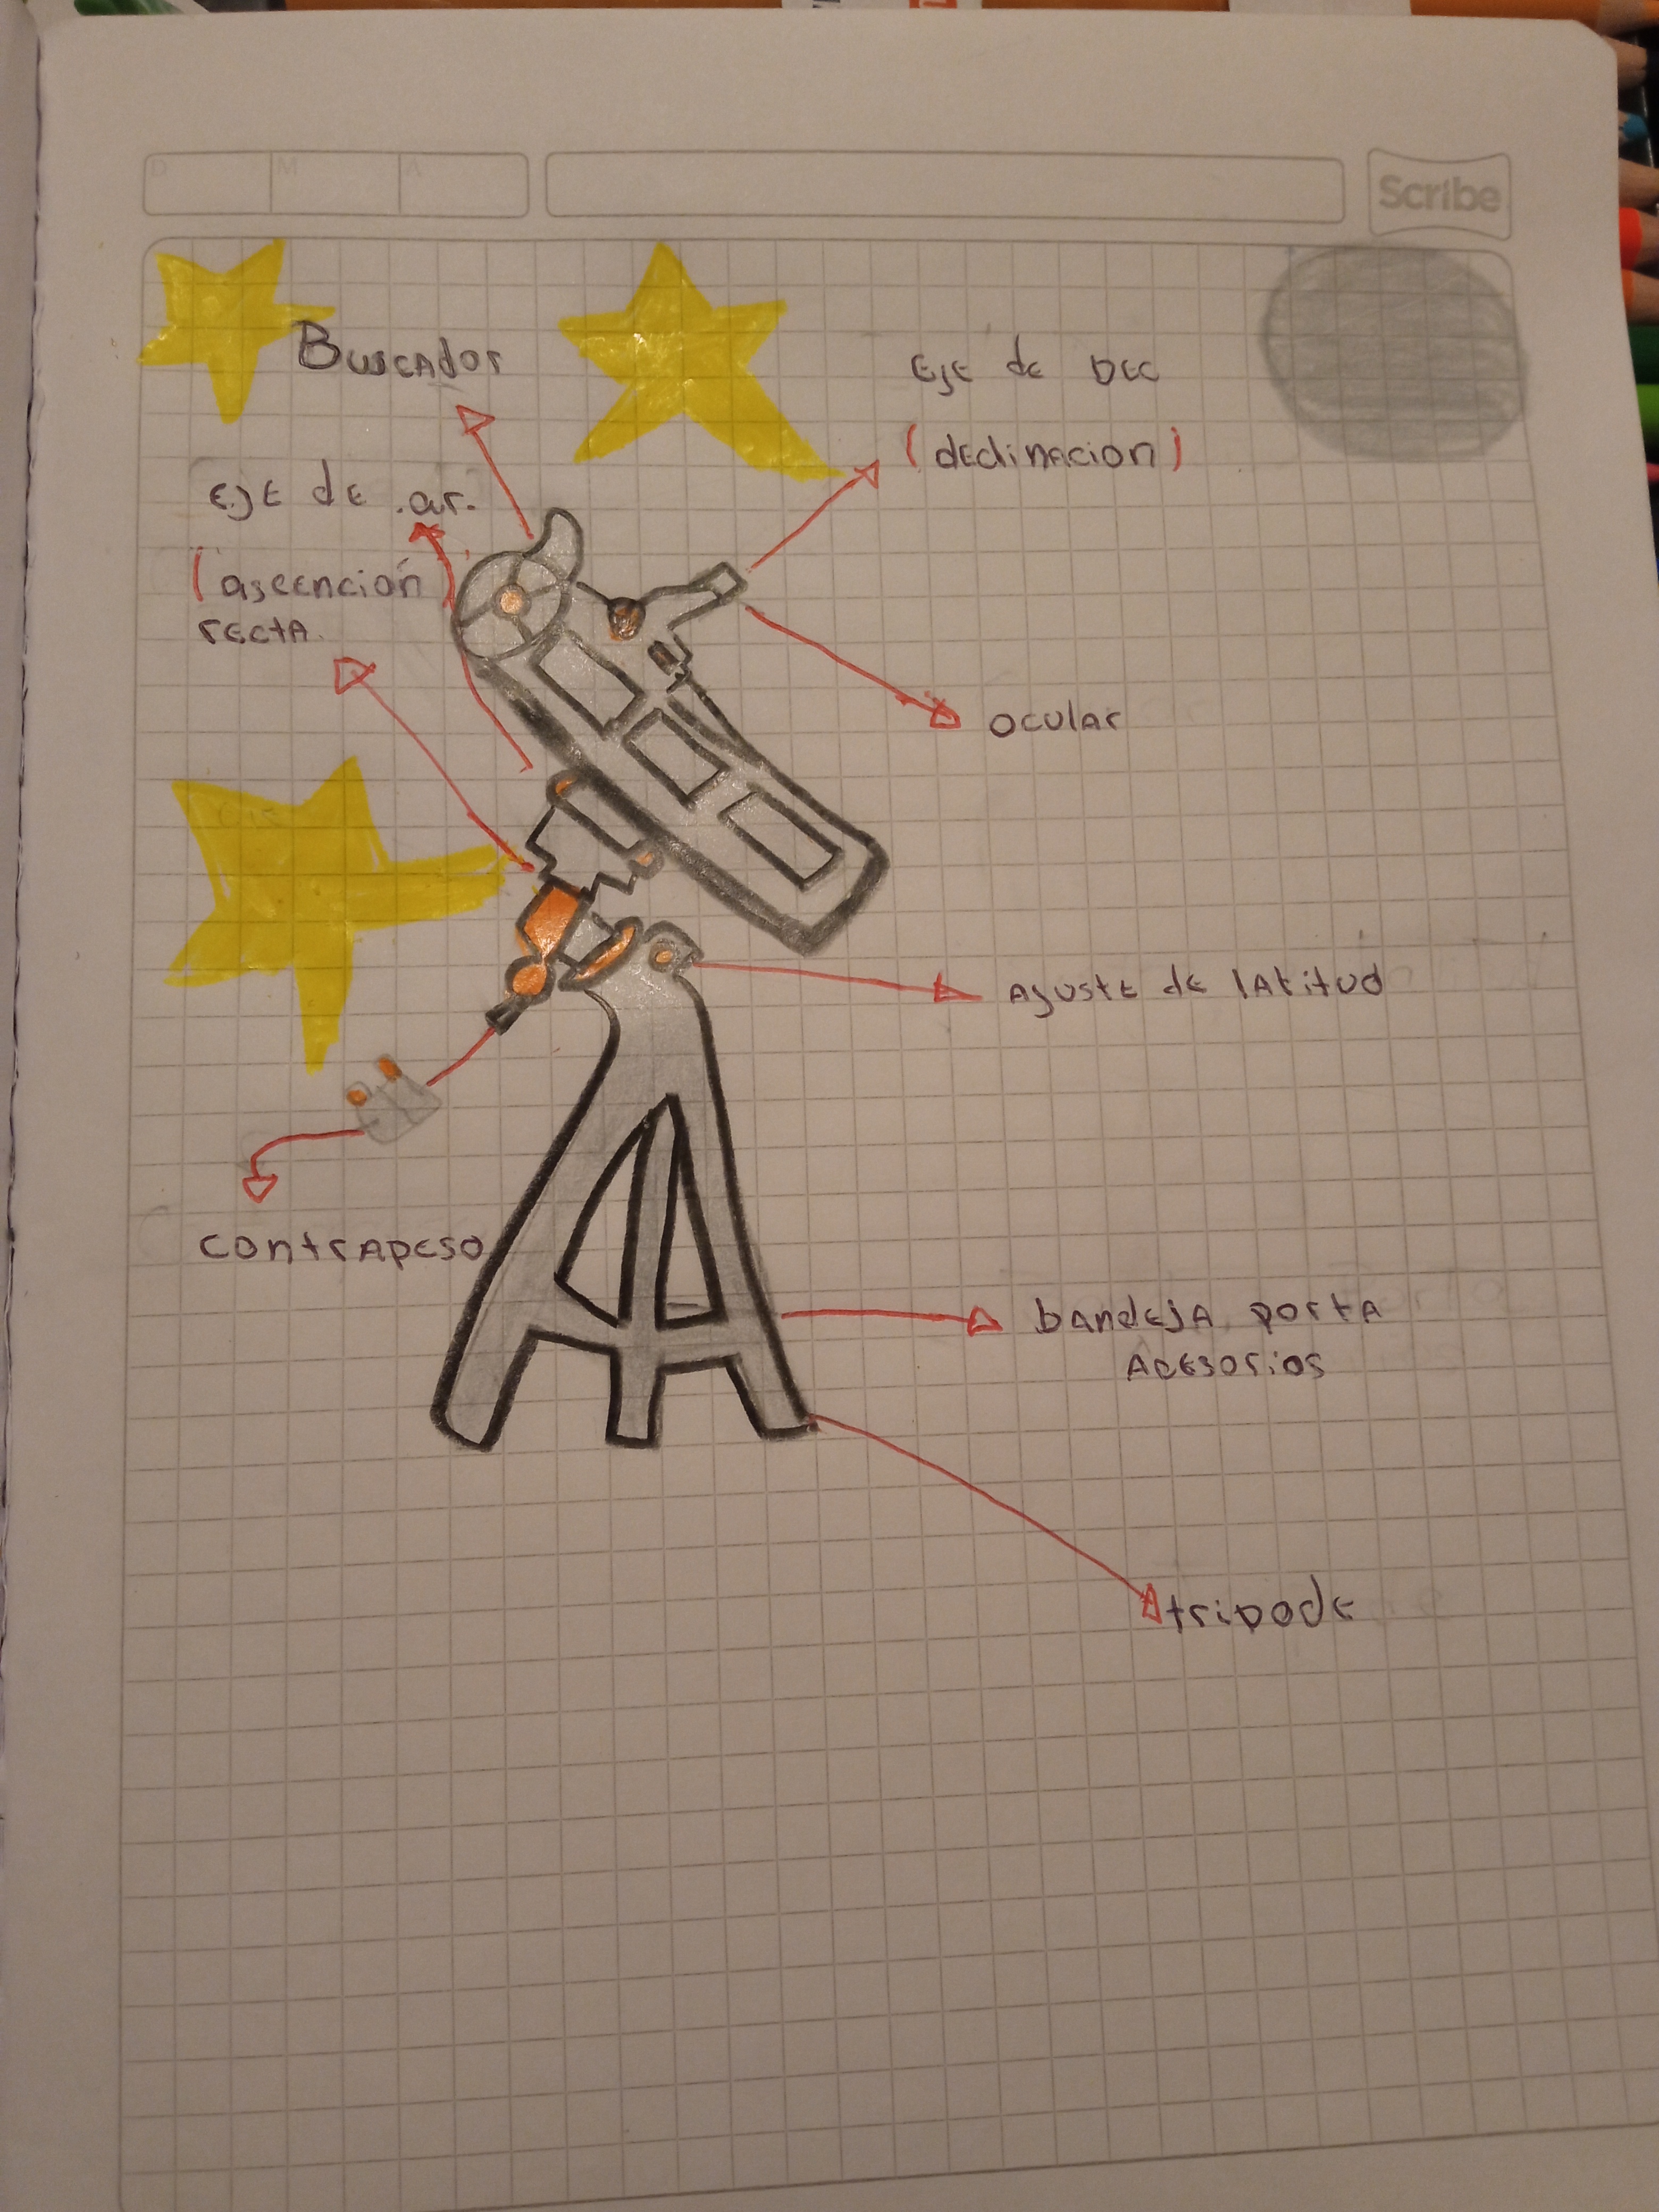 D M A
Scribe
Buscador
Eje de DEC
(declinacion)
Eje de .ar.
(ascención
recta.
ocular
Ajuste de latitud
contrapeso
bandeja porta
Acesorios
tripode